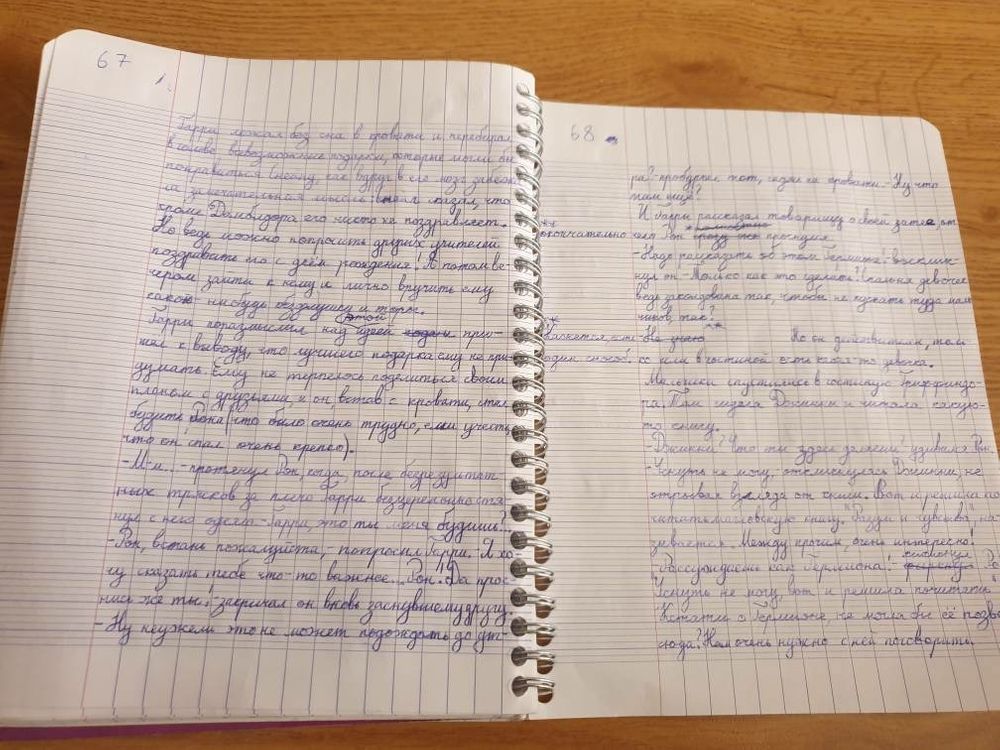 67
1.
Гарри лежал без сна в кровати и перебирал
в голове всевозможные подарки, которые могли бы
понравиться Снегу, как вдруг в его мозг забрела
замечательная мысль: сказал, что
кроме Дамблдора, его никто не поздравляет.
Но ведь можно попросить других учителей
поздравить его с днём рождения! А потом ве-
чером зайти к нему и лично вручить ему
какую-нибудь вещицу и торт.
этой
Гарри поразмыслил над идеей и при-
шёл к выводу, что лучшего подарка ему не при-
думать. Ему не терпелось поделиться своим
планом с друзьями, и он, встав с кровати, стал
будить Рона (что было очень трудно, если учесть,
что он спал очень крепко).
-М-м... - протянул Рон, когда, после безрезультат-
ных трясков за плечо Гарри бесцеремонно стя-
нул с него одеяло. - Гарри, это ты меня будишь?..
-Рон, встань пожалуйста, - попросил Гарри. Я хо-
чу сказать тебе что-то важное... Рон! Да прос-
нись же ты! - закричал он вновь заснувшему другу.
- Ну неужели это не может подождать до ут-
68
ра? - пробурчал тот, садясь на кровати. - Ну что
там ещё?
И Гарри рассказал товарищу о своей затее, от
окончательно
чего Рон проснулся.
-Надо рассказать об этом Гермионе! - восклик-
нул он. - Только как это сделать? Спальня девочек
ведь заколдована так, чтобы не пускать туда маль-
чиков, так?
-Кажется, есть
один способ,
Но он действителен, толь-
ко если в гостиной есть какая-то девочка.
Мальчики спустились в гостиную Гриффиндо-
ра. Там сидела Джинни и читала какую-
то книгу.
-Джинни? Что ты здесь делаешь? удивился Рон.
-Уснуть не могу, - откликнулась Джинни, не
отрывая взгляда от книги. Вот и решила по-
читать магловскую книгу. "Разум и чувства" на-
зывается. Между прочим, очень интересно!
-Рассуждаешь как Гермиона! - фыркнул Ро
Уснуть не могу, вот и решила почитать
Кстати о Гермионе, не могла бы её позв
сюда? Нам очень нужно с ней поговорить.